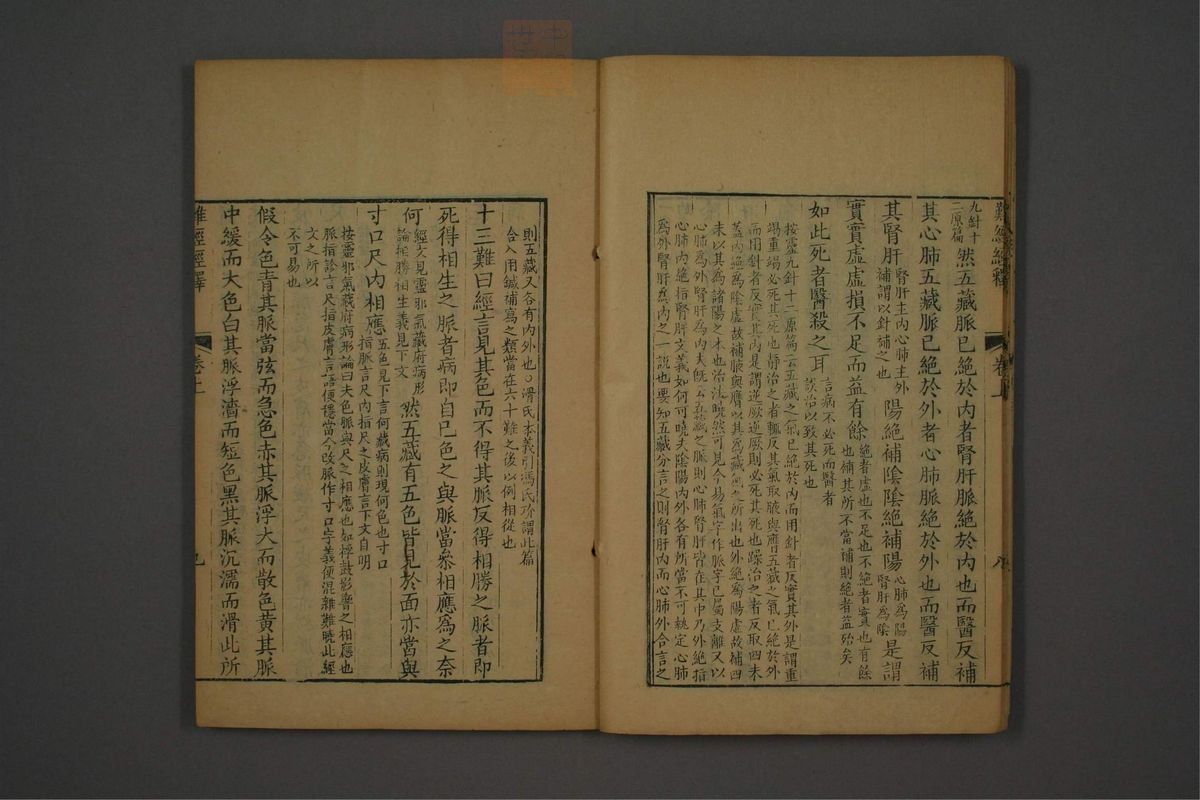 難經經釋
卷上
九針十
二原篇
然五藏脈已絕於內者腎肝脈絕於內也而醫反補
其心肺五藏脈已絕於外者心肺脈絕於外也而醫反補
其腎肝
腎肝主內心肺主外
補謂以針補之也
陽絕補陰陰絕補陽
心肺為陽
腎肝為陰
是謂
實實虛虛損不足而益有餘
絕者虛也不足也不絕者實也有餘
也補其所不當補則絕者益殆矣
如此死者醫殺之耳
言病不必死而醫者
誤治以致其死也
按靈九針十二原篇云五藏之氣已絕於內而用針者反實其外是謂重
竭重竭必死其死也靜治之者輒反其氣取腋與膺五藏之氣已絕於外
而用針者反實其內是謂逆厥逆厥則必死其死也躁治之者反取四末
蓋內絕為陰虛故補腋與膺以其為藏氣之所出也外絕為陽虛故補四
末以其為諸陽之本也治法曉然可見今易氣字作脈字已屬支離又以
心肺為外腎肝為內夫既云五藏之脈則心肺腎肝皆在其中乃外絕指
心肺內絕指腎肝文義如何可曉夫陰陽內外各有所當不可執定心肺
為外腎肝為內之一說也要知五藏分言之則腎肝內而心肺外合言之
則五藏又各有內外也○滑氏本義引馮氏玠謂此篇
合入用鍼補寫之類當在六十難之後以例相從也
十三難曰經言見其色而不得其脈反得相勝之脈者即
死得相生之脈者病即自已色之與脈當參相應為之奈
何
經文見靈邪氣藏府病形
論相勝相生義見下文
然五藏有五色皆見於面亦當與
寸口尺內相應
五色見下言何藏病則現何色也寸口
指脈言尺內指尺之皮膚言下文自明
按靈邪氣藏府病形論曰夫色脈與尺之相應也如桴鼓影響之相應也
脈指診言尺指皮膚言語便穩當今改脈作寸口字義便混雜難曉此經
文之所以
不可易也
假令色青其脈當弦而急色赤其脈浮大而散色黃其脈
中緩而大色白其脈浮濇而短色黑其脈沉濡而滑此所
難經經釋
卷上
九